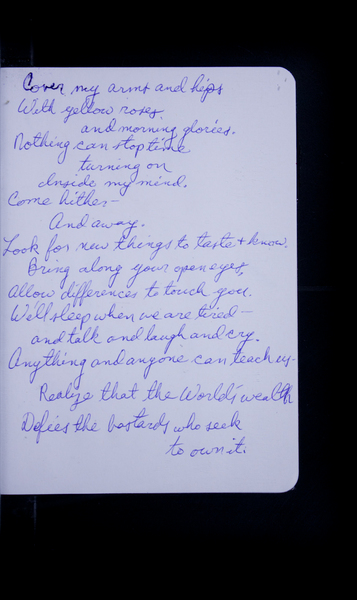 Cover my arms and hips
With yellow roses.
and morning glories.
Nothing can stop time
turning on
Inside my mind.
Come hither—
And away.
Look for new things to taste + know.
Bring along your open eyes,
Allow differences to touch you.
We'll sleep when we are tired—
and talk and laugh and cry.
Anything and anyone can teach us—
Realize that the World's wealth
Defies the bastards who seek
to own it.